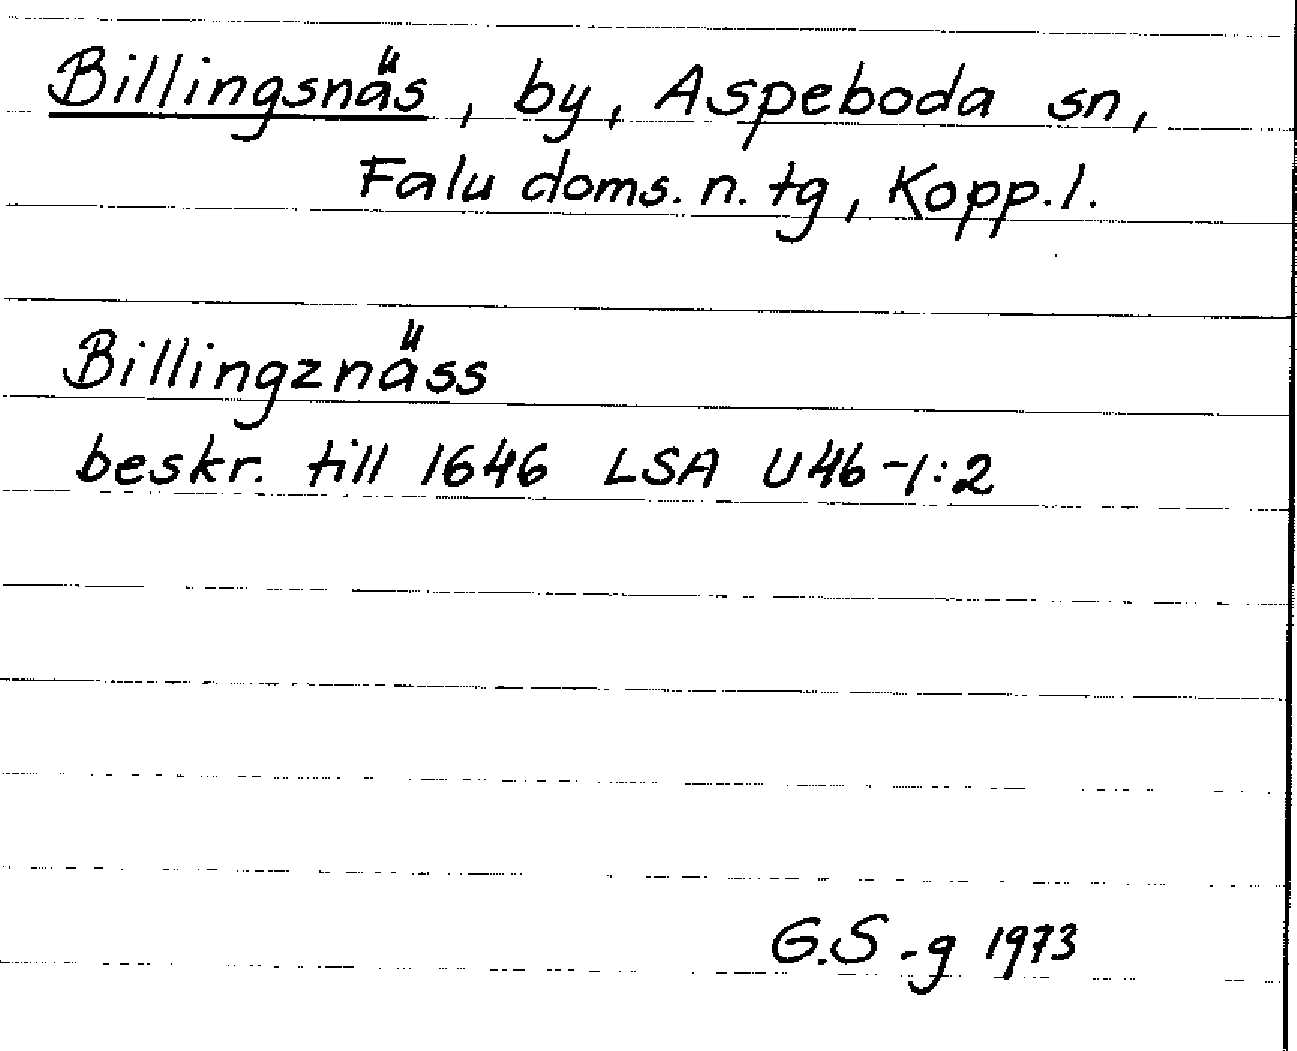 Billingsnäs, by, Aspeboda sn,
Falu doms. n. tg, Kopp. l.
Billingznäss
beskr. till 1646 LSA U46-1:2
G.S-g 1973